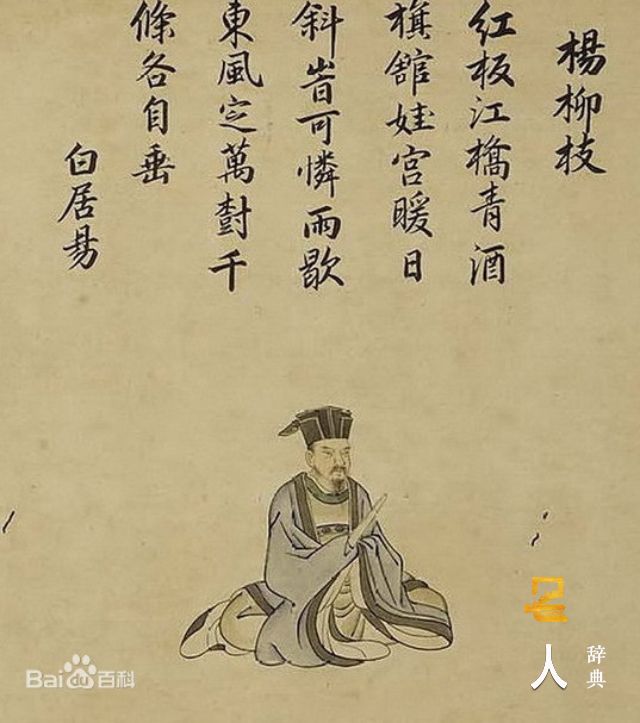 楊柳枝
紅板江橋青酒
旗舘娃宮暖日
斜旹可憐雨歇
東風定萬樹千
條各自垂
白居易
Bai du 百科
名人
辞典